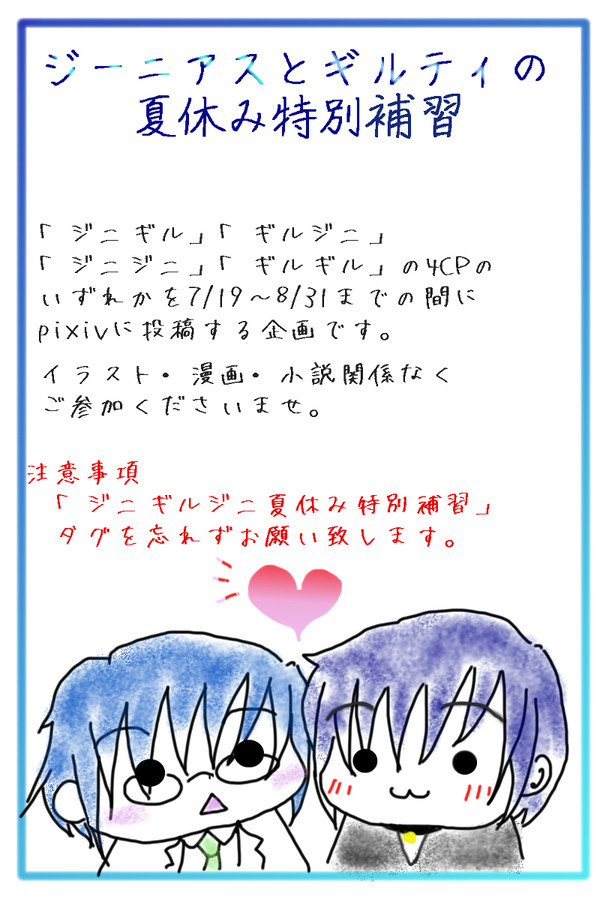 ジーニアスとギルティの
夏休み特別補習
「ジニギル」「ギルジニ」
「ジニジニ」「ギルギル」の4CPの
いずれかを7/19～8/31までの間に
pixivに投稿する企画です。
イラスト・漫画・小説関係なく
ご参加くださいませ。
注意事項
「ジニギルジニ夏休み特別補習」
タグを忘れずお願い致します。